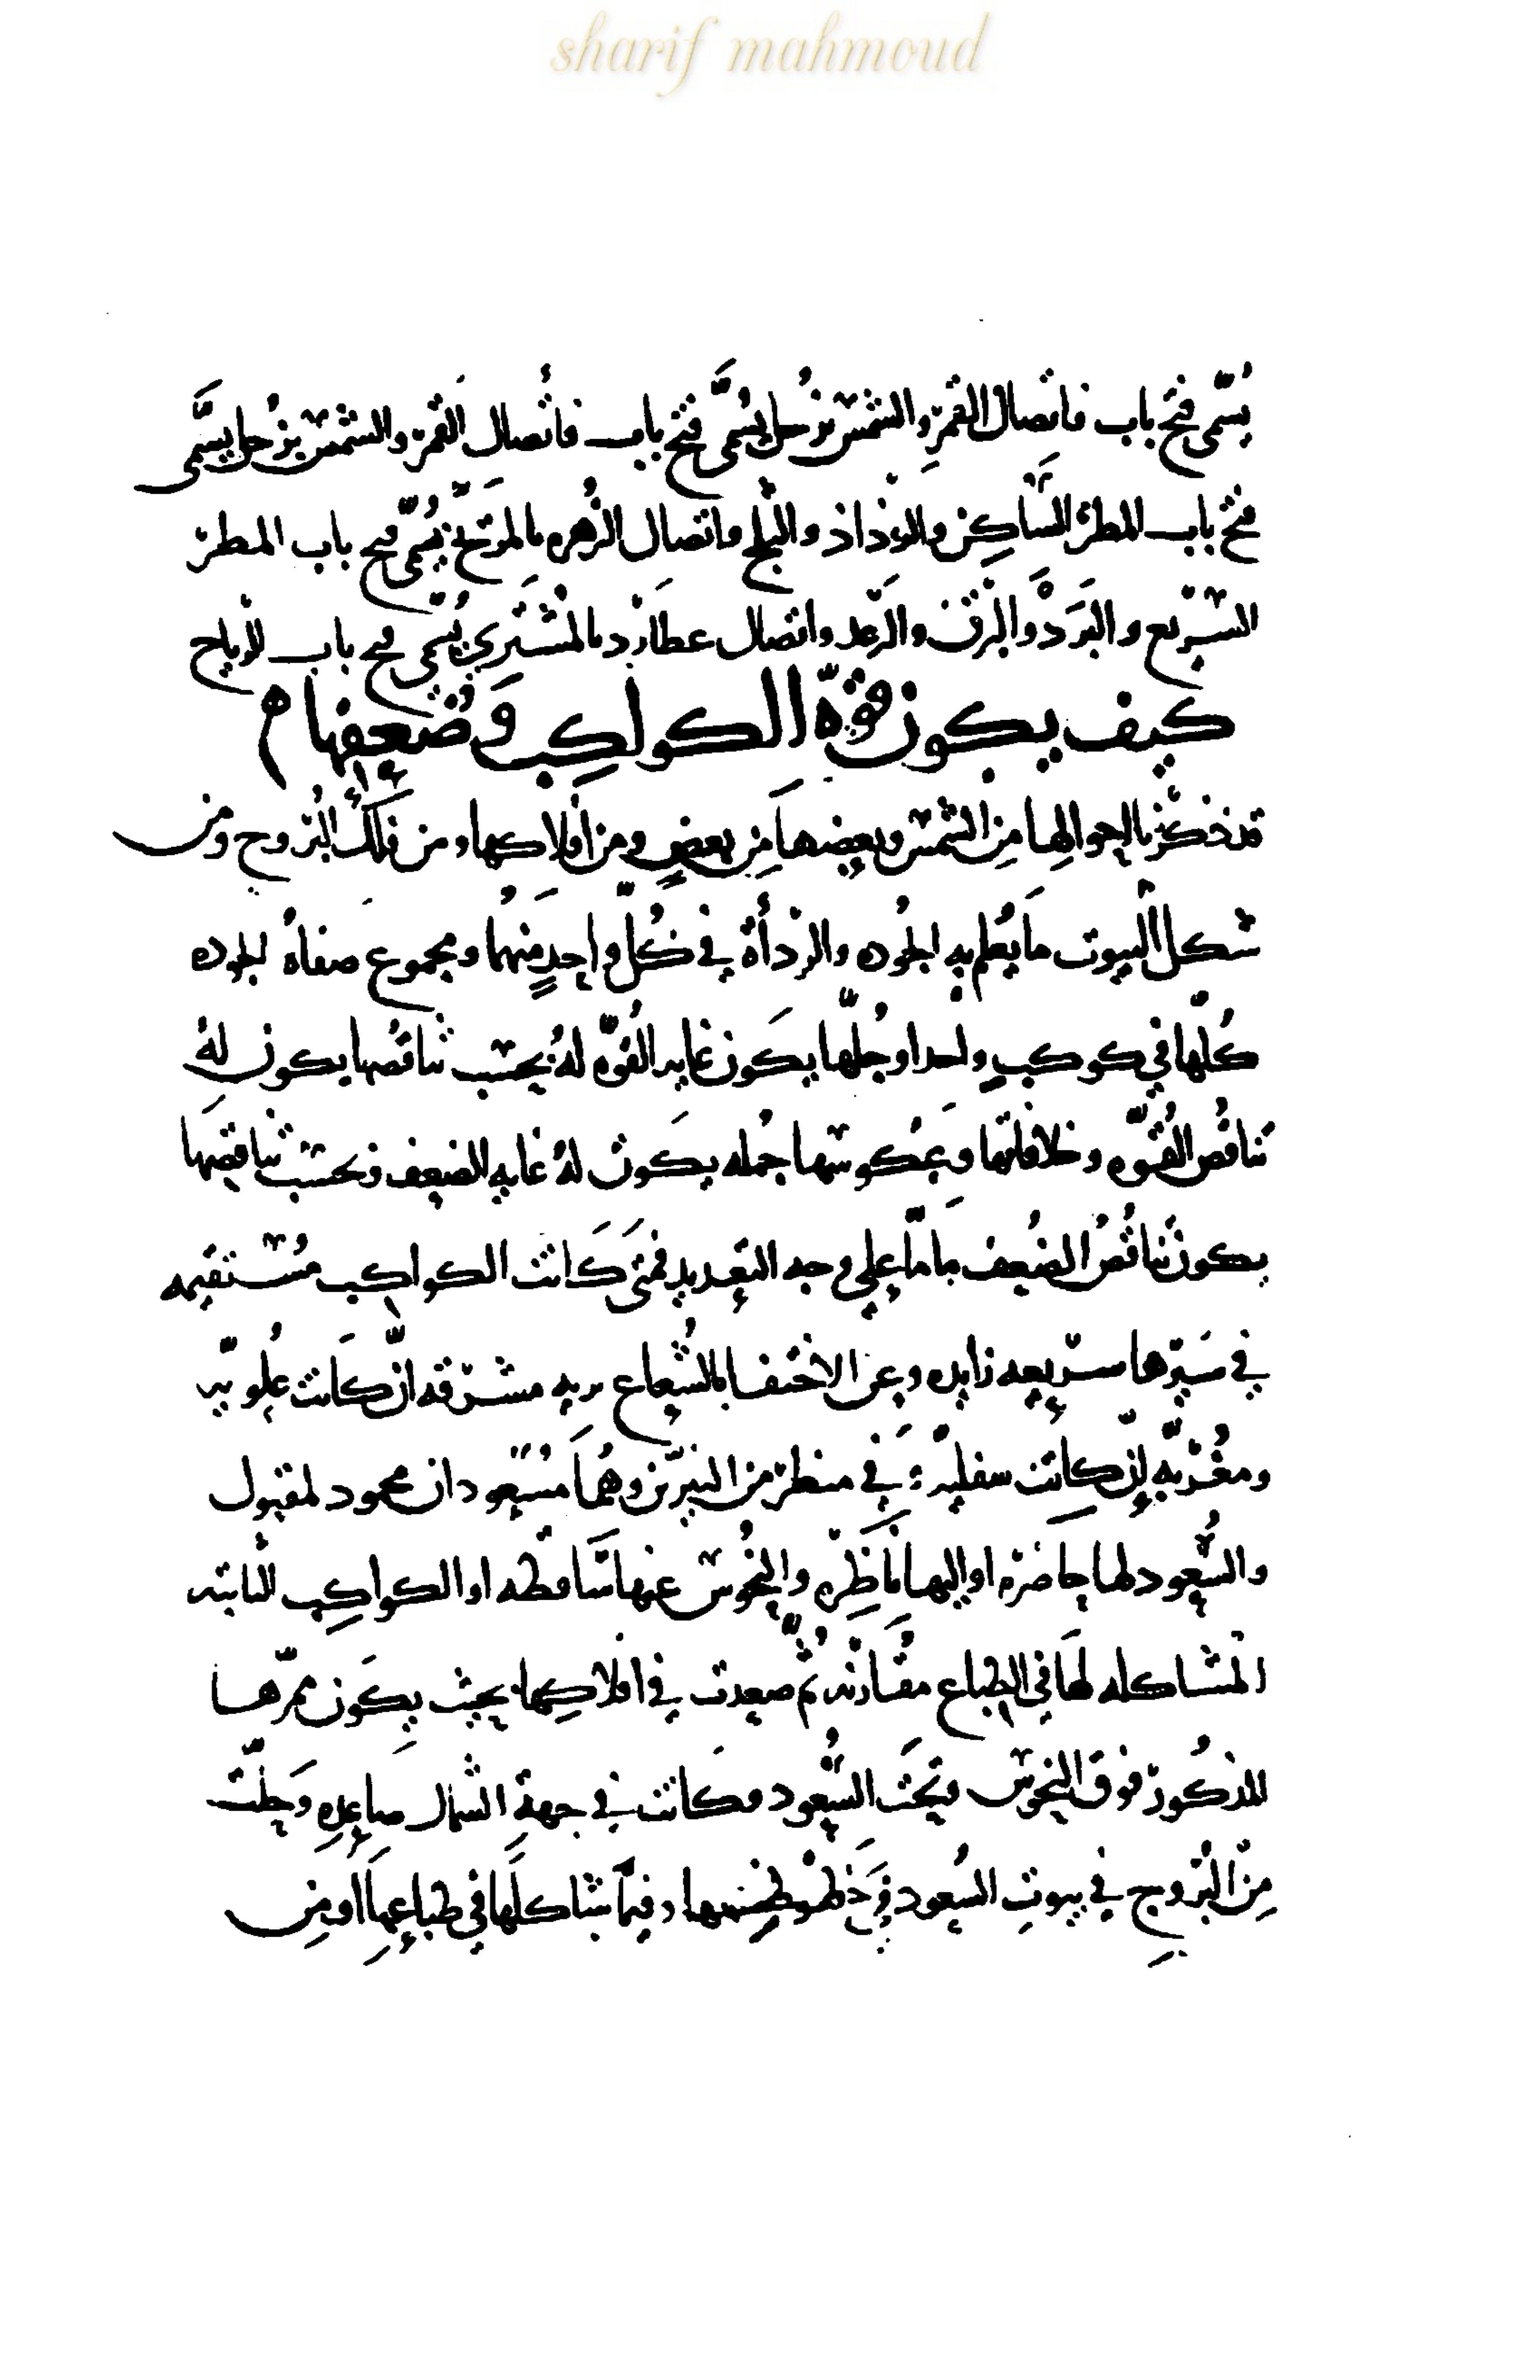 sharif mahmoud
يسمى فتح باب فاتصال القمر والشمس بزحل يسمى فتح باب فاتصال القمر والشمس بزحل يسمى
فتح باب المطر الساكن والرذاذ والثلج واتصال الزهره بالمريخ يسمى فتح باب المطر
السريع والبرد والبرق والرعد واتصال عطارد بالمشتري يسمى فتح باب للارياح
كيف يكون قوة الكواكب وضعفها
قد ذكرنا احوالها من الشمس وبعضها من بعض ومن افلاكها ومن فلك البروج ومن
شكل البيوت ما يعلم به الجوده والردأة في كل واحد منهما ومجموع صفاة الجوده
كلها في كوكب واحد او جلها يكون غايه القوه له بحسب تناقصها يكون له
تناقص القوه وخلافاتها وعكوسها جمله يكون له غايه الضعف وبحسب تناقصها
يكون تناقص الضعف فاما على وجه التعديد فمتى كانت الكواكب مستقيمه
في سيرها سريعه زايده وعن الاختفا بالشعاع بريه مشرقه ان كانت علويه
ومغربه ان كانت سفليه في منظر من النيرين وهما مسعودان محمود لمقبول
والسعود لها حاضره او اليها ناظره والنحوس عنها ساقطه او الكواكب الثابته
المشاكله لها في الطباع مقارنه ثم صعدت في افلاكها بحيث يكون ممرها
المذكور فوق النحوس وتحت السعود وكانت في جهة الشمال صاعده وحلت
من البروج في بيوت السعود وفيما شاكلها في طباعها او من